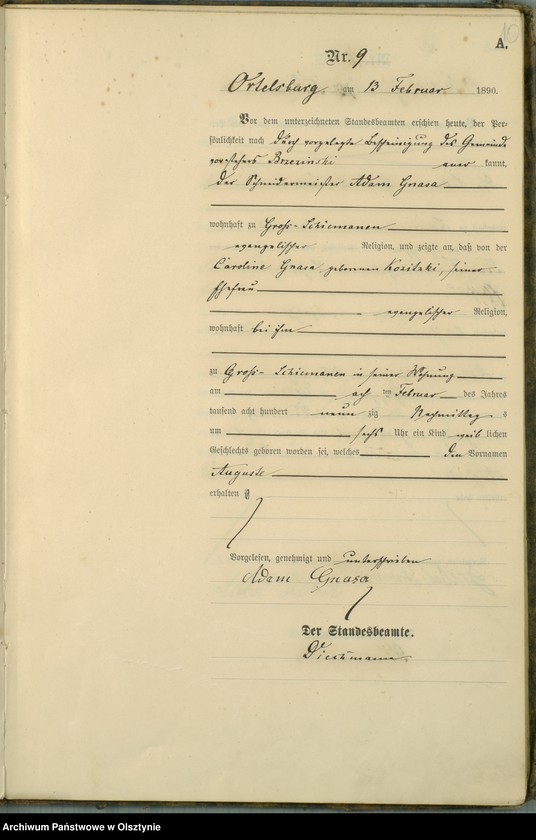 10
A.
Nr. 9
Ortelsburg, am 13 Februar 1890.
Vor dem unterzeichneten Standesbeamten erschien heute, der Per-
sönlichkeit nach durch vorgelegte Bescheinigung des Gemeinde
vorstehers Brzezinski aner kannt,
der Schneidermeister Adam Gnasa
wohnhaft zu Groß-Schiemanen
evangelischer Religion, und zeigte an, daß von der
Caroline Gnasa geborenen Kositzki, seiner
Ehefrau
evangelischer Religion,
wohnhaft bei ihm
zu Groß-Schiemanen in seiner Wohnung
am ach ten Februar des Jahres
tausend acht hundert neun zig Nachmittag s
um sechs Uhr ein Kind weib lichen
Geschlechts geboren worden sei, welches den Vornamen
Auguste
erhalten
Vorgelesen, genehmigt und unterschrieben
Adam Gnasa
Der Standesbeamte.
Archiwum Państwowe w Olsztynie